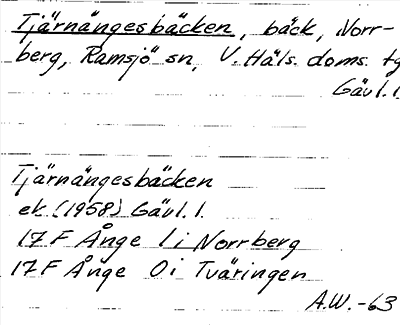 Tjärnängesbäcken, bäck, Norr-
berg, Ramsjö sn, V. Häls. doms. tg
Gävl. l.
Tjärnängesbäcken
ek. (1958) Gävl. l.
17 F Ånge 1 i Norrberg
17 F Ånge 0 i Tväringen
A.W. -63